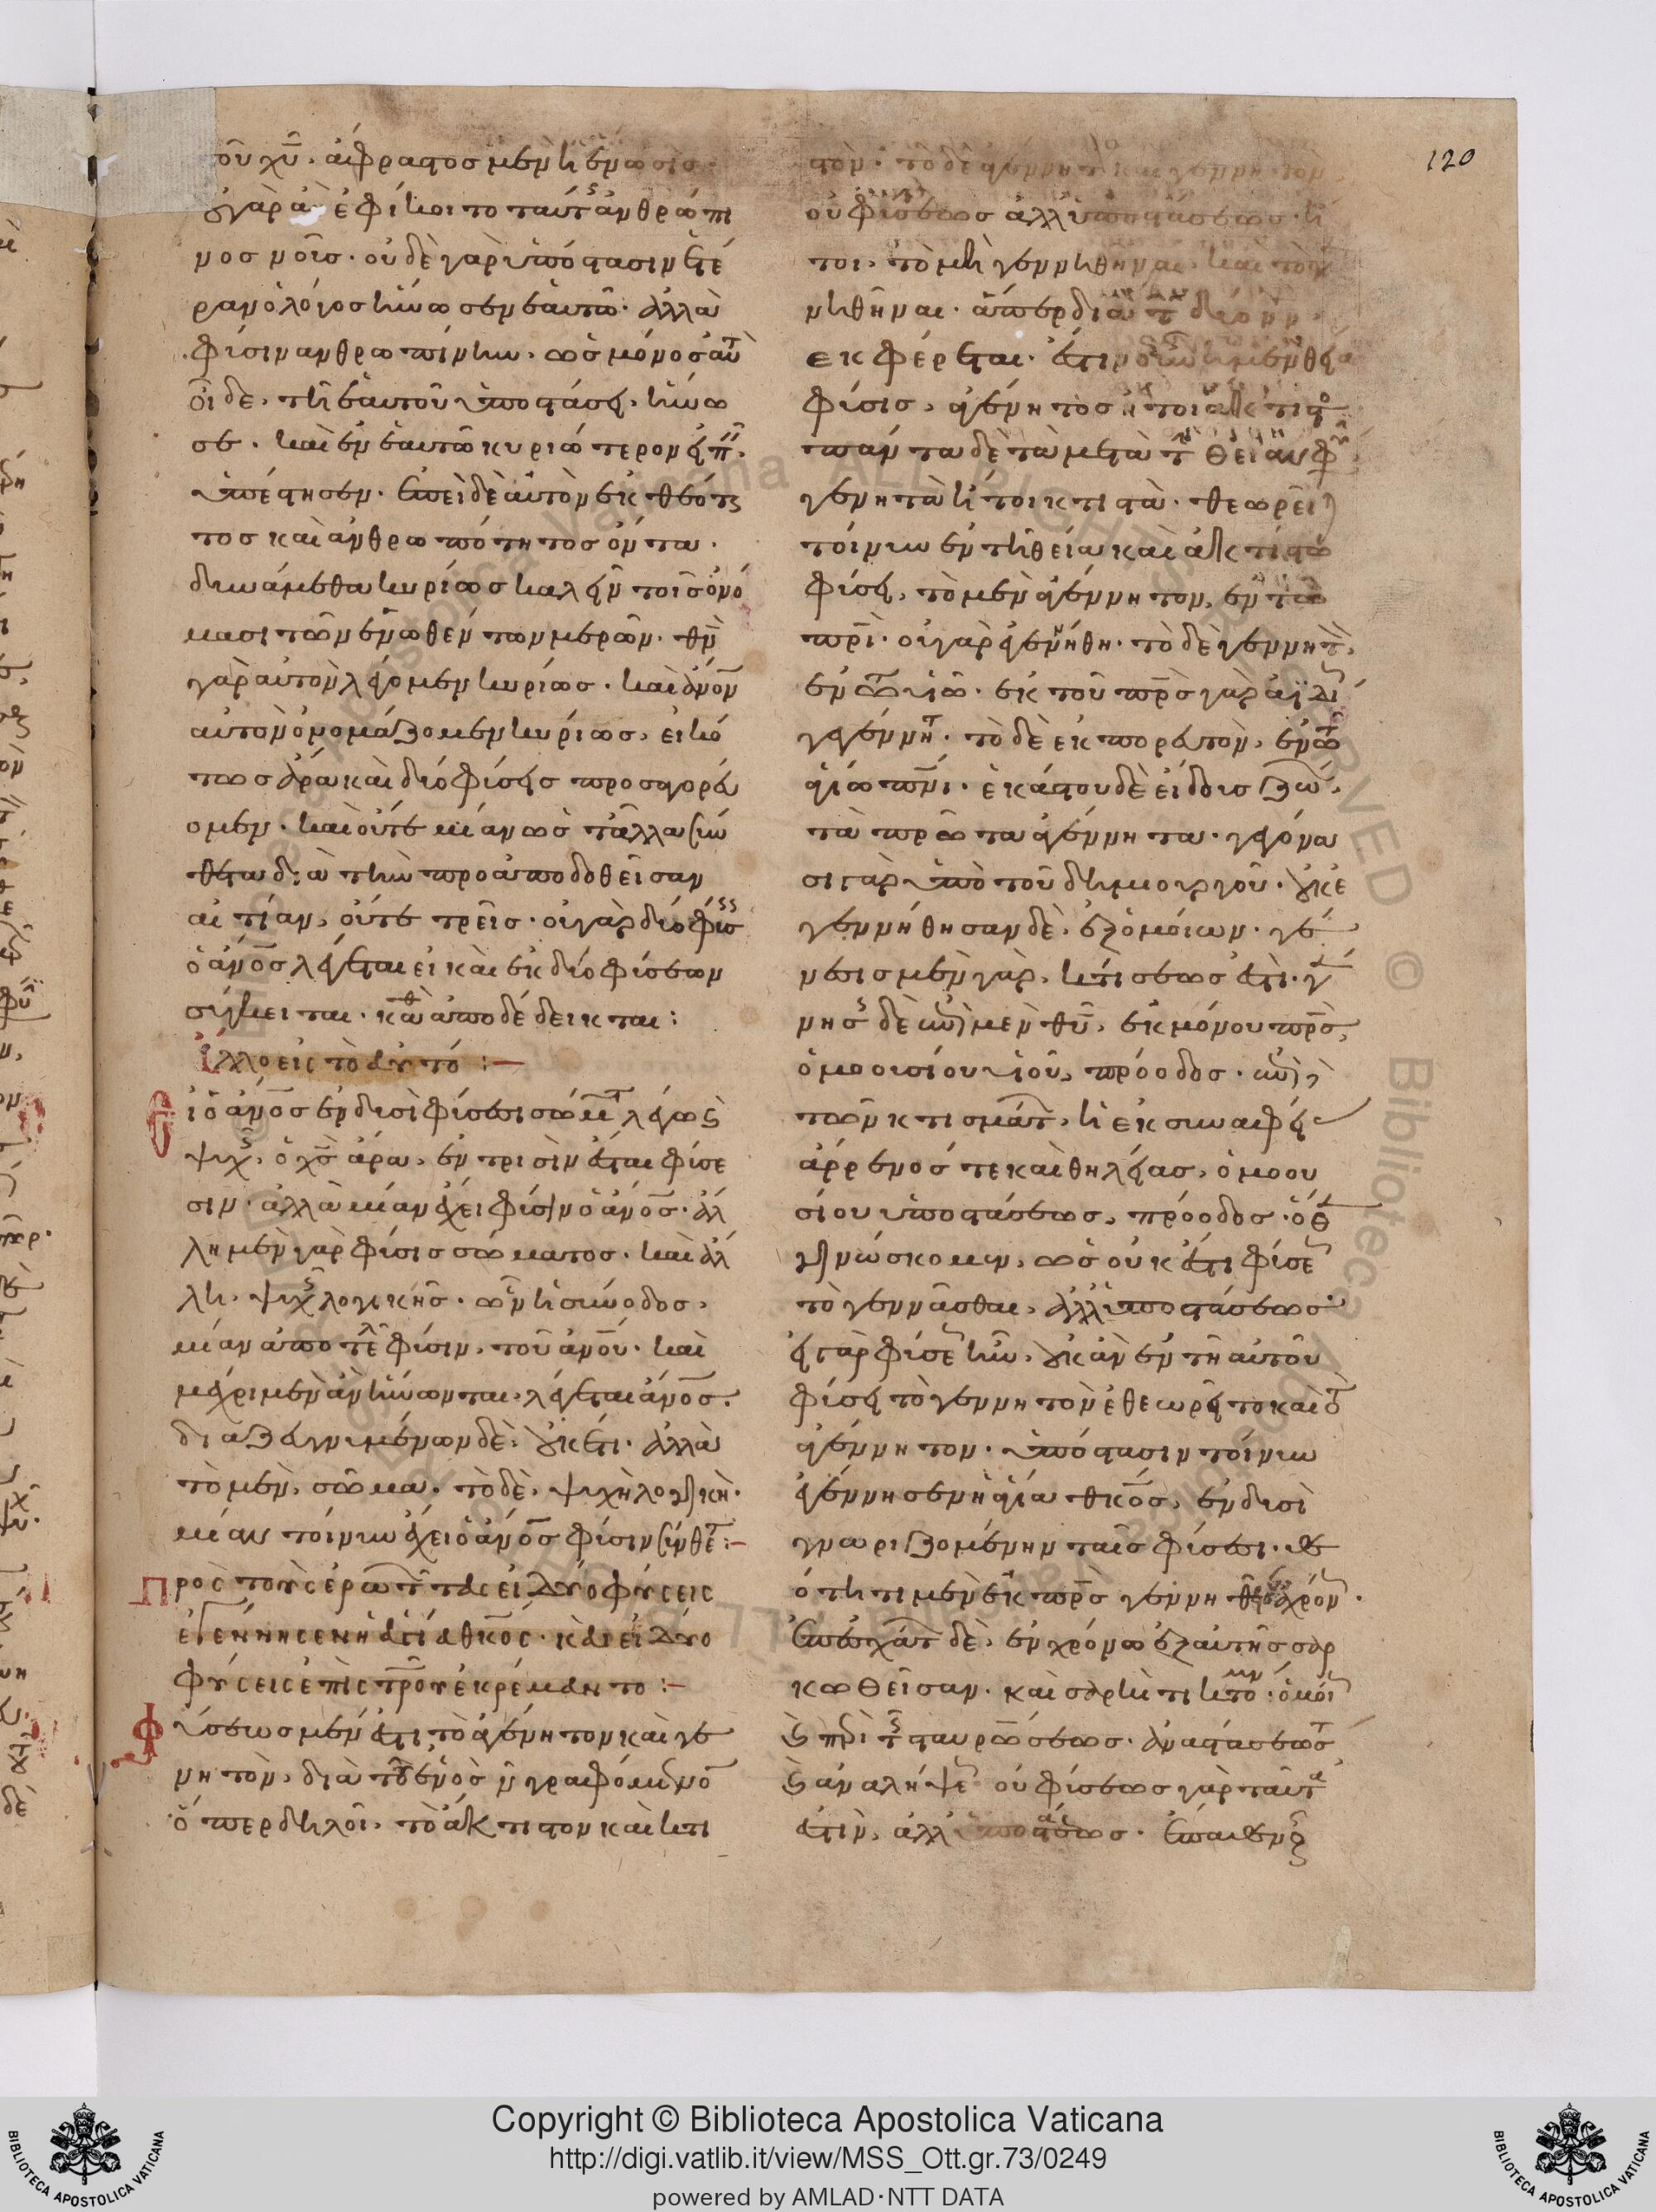 120
τοῦ χυ. ἄφραστος μὲν ἡ ἕνωσις.
οὐ γὰρ ἂν ἐφίκοιτο ταύτης ἀνθρώπι
νος νοῦς. οὐδὲ γὰρ ὑπόστασιν ἑτέ
ραν ὁ λόγος ἥνωσεν ἑαυτῶ. ἀλλὰ
φύσιν ἀνθρωπίνην. ὡς μόνος αὐτὸς
οἶδε. τῆ ἑαυτοῦ ὑποστάσει ἥνω
σε. καὶ ἐν ἑαυτῶ κυριώτερον εἰπεῖν.
ὑπέστησεν. ἐπεὶ δὲ αὐτὸν ἐκ θεότη
τος καὶ ἀνθρωπότητος ὄντα.
δυνάμεθα κυρίως καλεῖν τοῖς ὀνό
μασι τῶν ἑνωθέντων μερῶν. θν
γὰρ αὐτὸν λέγομεν κυρίως. καὶ ἀνον
αὐτὸν ὀνομάζομεν κυρίως. εἰκό
τως ἄρα καὶ δύο φύσεις προσαγορεύ
ομεν. καὶ οὔτε μίαν ὡς τἄλλα σύν
θετα διὰ τὴν προαποδοθεῖσαν
αἰτίαν. οὔτε τρεῖς. οὐ γὰρ δύο φύσεις
ὁ ἀνος λέγεται εἰ καὶ ἐκ δύο φύσεων
σύγκειται. καθὰ ἀποδέδεικται:
Ἄλλο εἰς τὸ αὐτό:
Εἰ ὁ ἀνος ἐν δυσὶ φύσεσι σώματος λέγω καὶ
ψυχῆς, ὁ χς ἄρα, ἐν τρισὶν ἔσται φύσε
σιν. ἀλλὰ μίαν ἔχει φύσιν ὁ ἀνος. ἄλ
λη μὲν γὰρ φύσις σώματος. καὶ ἄλ
λη, ψυχῆς λογικῆς. ὧν ἡ σύνοδος,
μίαν ἀποτελεῖ φύσιν, τοῦ ἀνου. καὶ
μέχρι μὲν ἂν ἥνωνται, λέγεται ἀνος.
διαζευγνυμένων δὲ, οὐκέτι. ἀλλὰ
τὸ μὲν, σῶμα. τὸ δὲ, ψυχὴ λογική.
μίαν τοίνυν ἔχει ὁ ἀνος φύσιν σύνθετον:
Πρὸς τοὺς ἐρωτῶντας εἰ δύο φύσεις
ἐγέννησεν ἡ ἁγία θκος. καὶ εἰ δύο
φύσεις ἐπὶ στρου ἐκρέμαντο:
Φύσεως μέν ἐστι τὸ ἀγένητον καὶ γε
νητὸν, διὰ τοῦ ἑνὸς ν γραφόμενον
ὅπερ δηλοῖ, τὸ ἄκτιστον καὶ κτι
στόν. τὸ δὲ ἀγέννητον καὶ γεννητὸν,
οὐ φύσεως ἀλλ' ὑποστάσεως. ἤ
τοι, τὸ μὴ γεννηθῆναι, καὶ τὸ γεν
νηθῆναι. ἅπερ διὰ τῶν δύο νν
ἐκφέρεται. ἔστιν οὖν ἡ μὲν θεία
φύσις, ἀγένητος ἤτοι ἄκτιστος
πάντα δὲ τὰ μετὰ τὴν θείαν φύσιν
γενητὰ ἤτοι κτιστά. θεωρεῖται
τοίνυν ἐν τῆ θεία καὶ ἀκτίστω
φύσει, τὸ μὲν ἀγέννητον, ἐν τῶ
πρι. οὐ γὰρ ἐγεννήθη. τὸ δὲ γεννητὸν,
ἐν τῶ υἱῶ. ἐκ τοῦ πρς γὰρ ἀϊδίως
γεγέννηται. τὸ δὲ ἐκπορευτὸν, ἐν τῶ
ἁγίω πνι. ἑκάστου δὲ εἴδους ζώων,
τὰ πρῶτα ἀγέννητα. γεγόνα
σι γὰρ ὑπὸ τοῦ δημιουργοῦ. οὐκ ἐ
γεννήθησαν δὲ, ἐξ ὁμοίων. γέ
νεσις μὲν γὰρ, κτίσεώς ἐστι. γέν
νησις δὲ ἐπὶ μὲν θυ, ἐκ μόνου πρς,
ὁμοουσίου υἱοῦ, πρόοδος. ἐπὶ δὲ
τῶν κτισμάτων, ἡ ἐκ συναφείας
ἄρρενός τε καὶ θηλείας, ὁμοου
σίου ὑποστάσεως, πρόοδος. ὅθεν
γινώσκομεν, ὡς οὐκ ἔστι φύσεως
τὸ γεννᾶσθαι, ἀλλ' ὑποστάσεως.
εἰ γὰρ φύσεως ἦν, οὐκ ἂν ἐν τῆ αὐτοῦ
φύσει τὸ γεννητὸν ἐθεωρεῖτο καὶ τὸ
ἀγέννητον. ὑπόστασιν τοίνυν
ἐγέννησεν ἡ ἁγία θκος, ἐν δυσὶ
γνωριζομένην ταῖς φύσεσι. θε
ότητι μὲν ἐκ πρς γεννηθεῖσαν ἀχρόνως.
ἐπ' ἐσχάτων δὲ, ἐν χρόνω ἐξ αὐτῆς σαρ
κωθεῖσαν. καὶ σαρκὶ τικτομένην. ὁμοίως
καὶ περὶ τῆς σταυρώσεως. ἀναστάσεώς τε
καὶ ἀναλήψεως οὐ φύσεως γὰρ ταῦτα
ἐστὶν, ἀλλ' ὑποστάσεως.
Copyright © Biblioteca Apostolica Vaticana
http://digi.vatlib.it/view/MSS_Ott.gr.73/0249
powered by AMLAD·NTT DATA
BIBLIOTECA APOSTOLICA VATICANA
BIBLIOTECA APOSTOLICA VATICANA